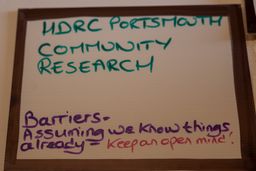 HDRC PORTSMOUTH
COMMUNITY
RESEARCH
Barriers-
Assuming we know things
already - keep an open mind!